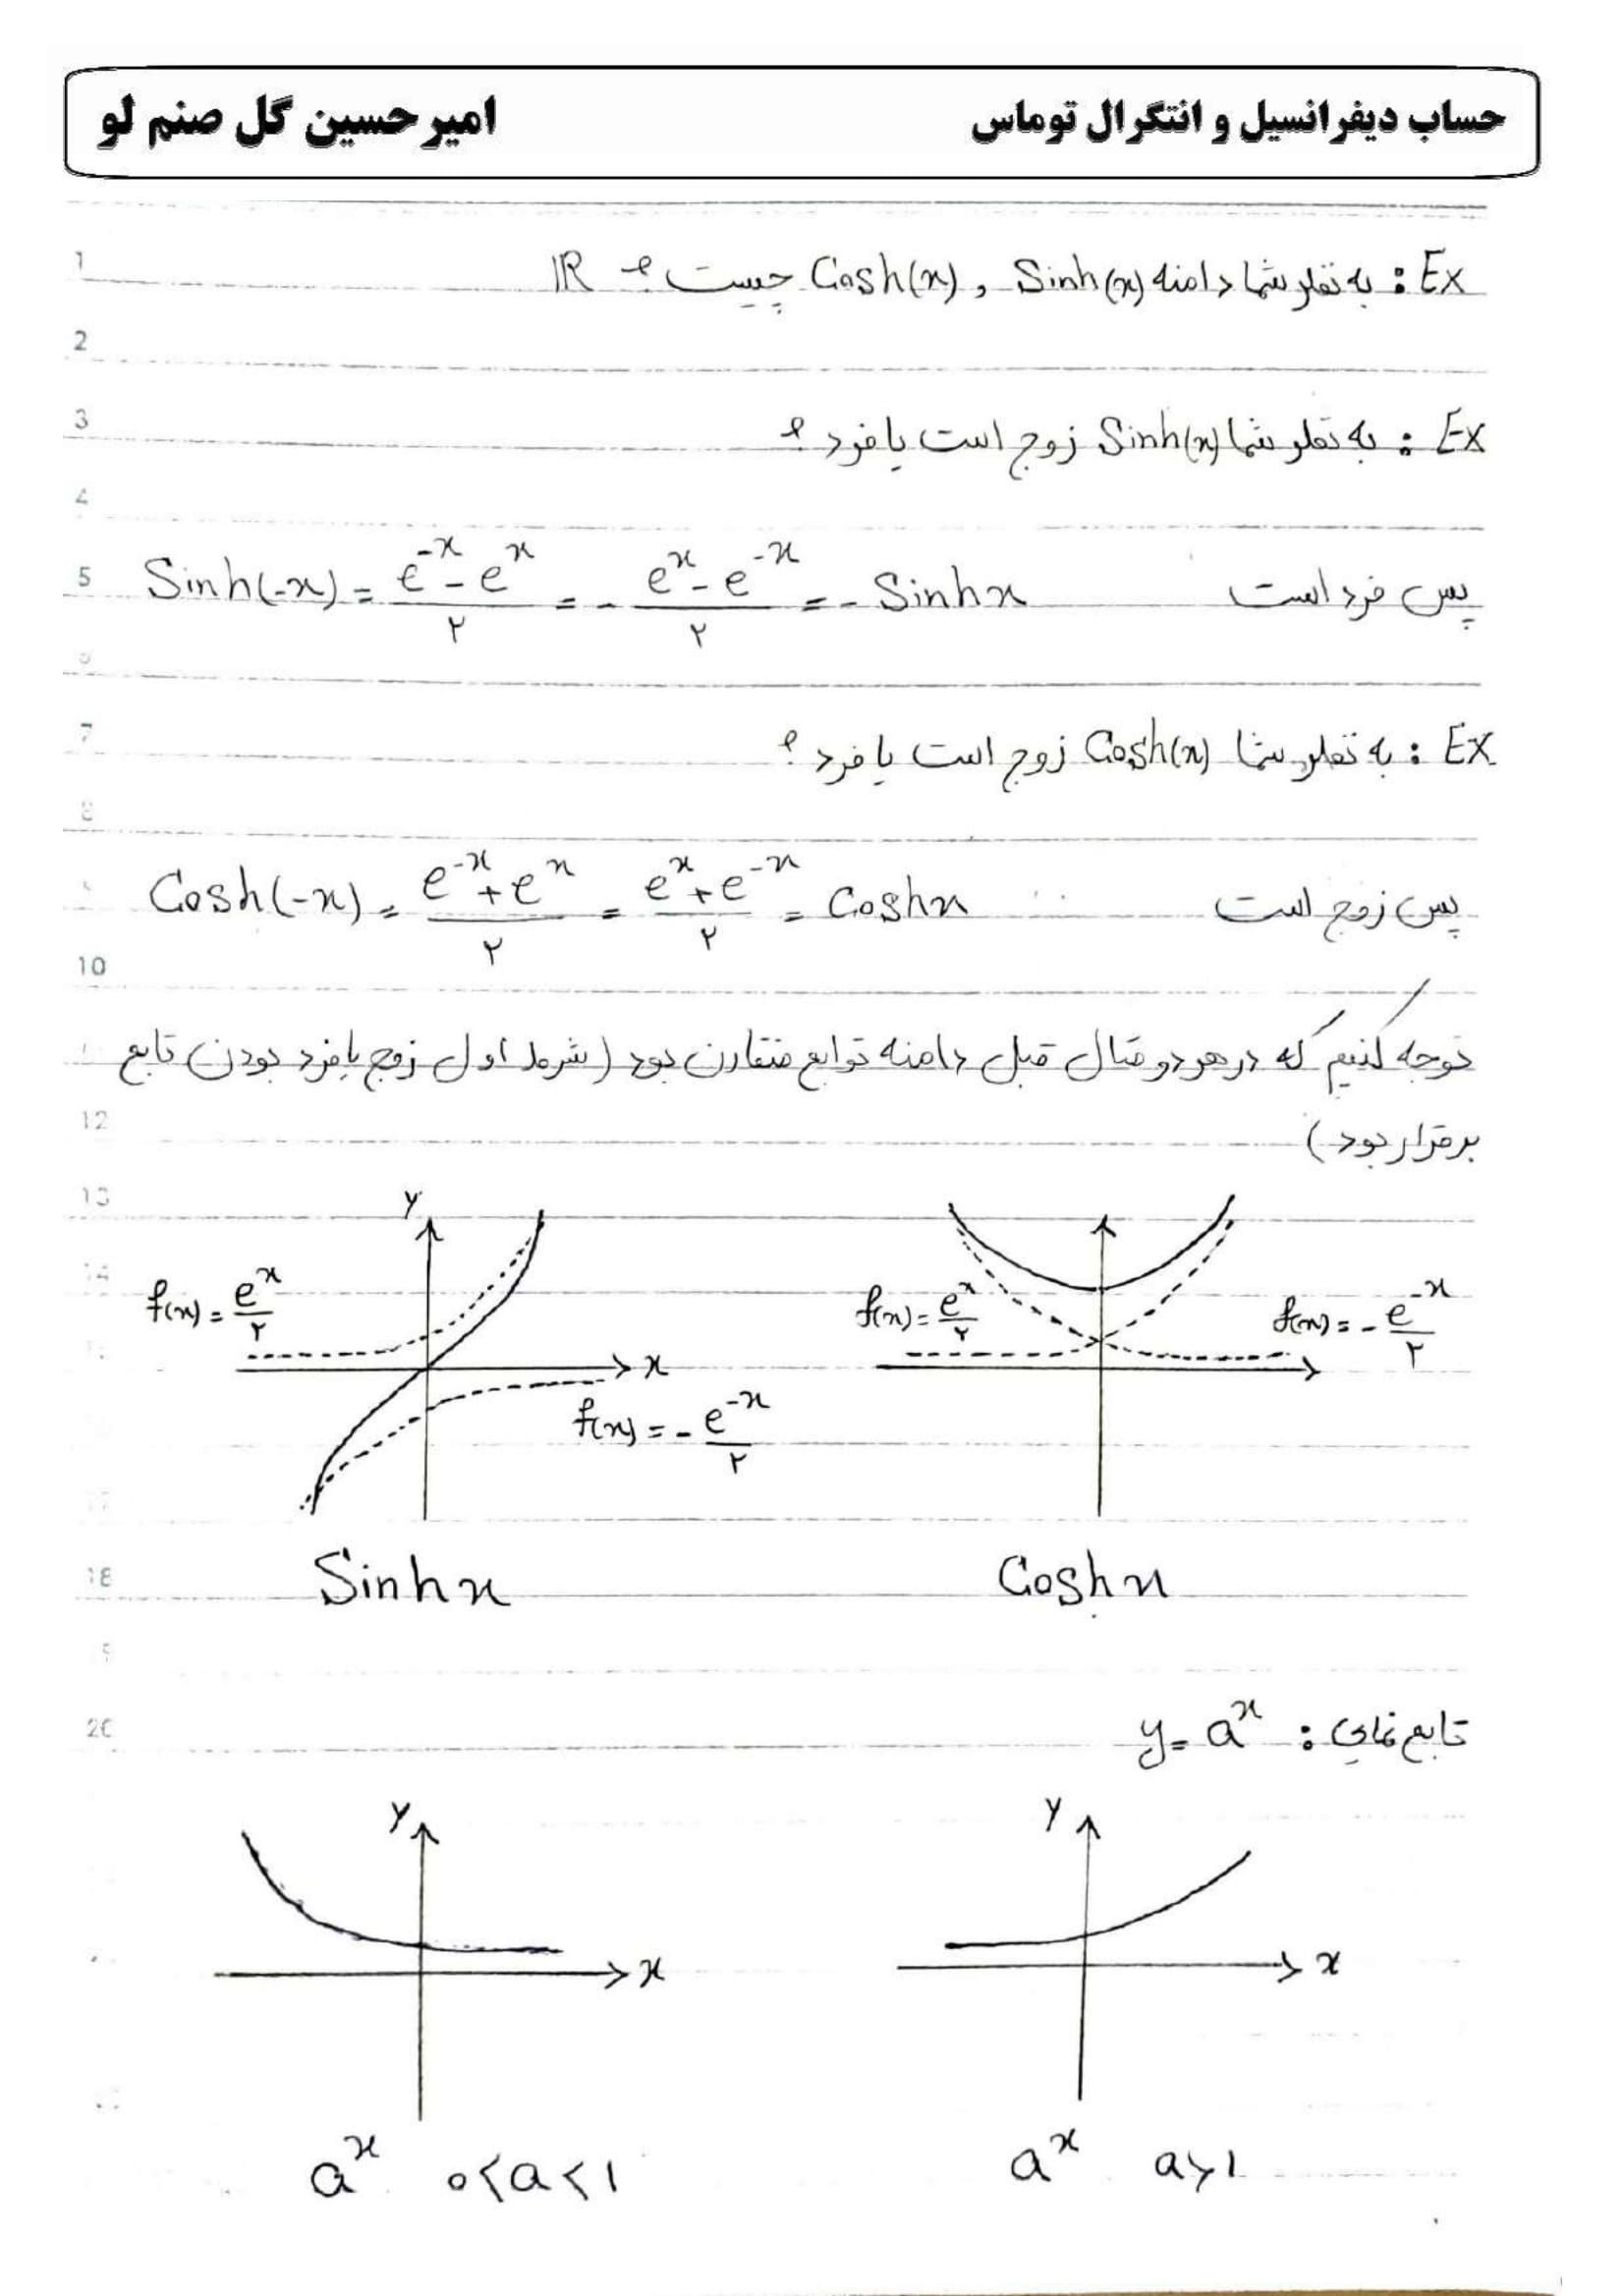 حساب دیفرانسیل و انتگرال توماس
امیر حسین گل صنم لو
1
Ex : به نظر شما دامنه Sinh(x) و Cosh(x) چیست ؟ ℝ
2
3
Ex : به نظر شما Sinh(x) زوج است یا فرد ؟
4
5
Sinh(-x) = (e^-x - e^x)/۲ = - (e^x - e^-x)/۲ = - Sinhx پس فرد است
7
Ex : به نظر شما Cosh(x) زوج است یا فرد ؟
8
Cosh(-x) = (e^-x + e^x)/۲ = (e^x + e^-x)/۲ = Coshx پس زوج است
10
توجه کنیم که در هر دو مثال قبل دامنه توابع متقارن بود (شرط اول زوج یا فرد بودن تابع
12
برقرار بود)
13
y
14
f(x) = e^x/۲
f(x) = e^x/۲
f(x) = - e^-x/۲
x
f(x) = - e^-x/۲
17
18
Sinh x
Cosh x
20
تابع نمای : y = a^x
y
y
x
x
a^x ۰<a<۱
a^x a>۱